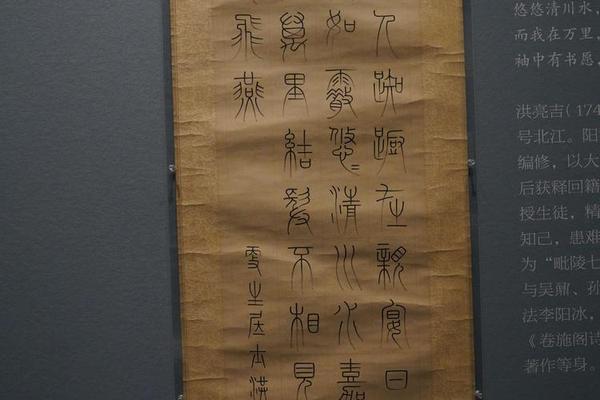 人踟躕在親宴日
如霰悠〻清川水嘉
萬里結髮不相見
飛燕
居
洪
悠悠清川水,
而我在万里,
袖中有书愿
洪亮吉(174
号北江。阳
编修,以大
后获释回籍
授生徒,精
知己,患难
为“毗陵七
与吴鼒、孙
法李阳冰,
《卷施阁诗
著作等身。